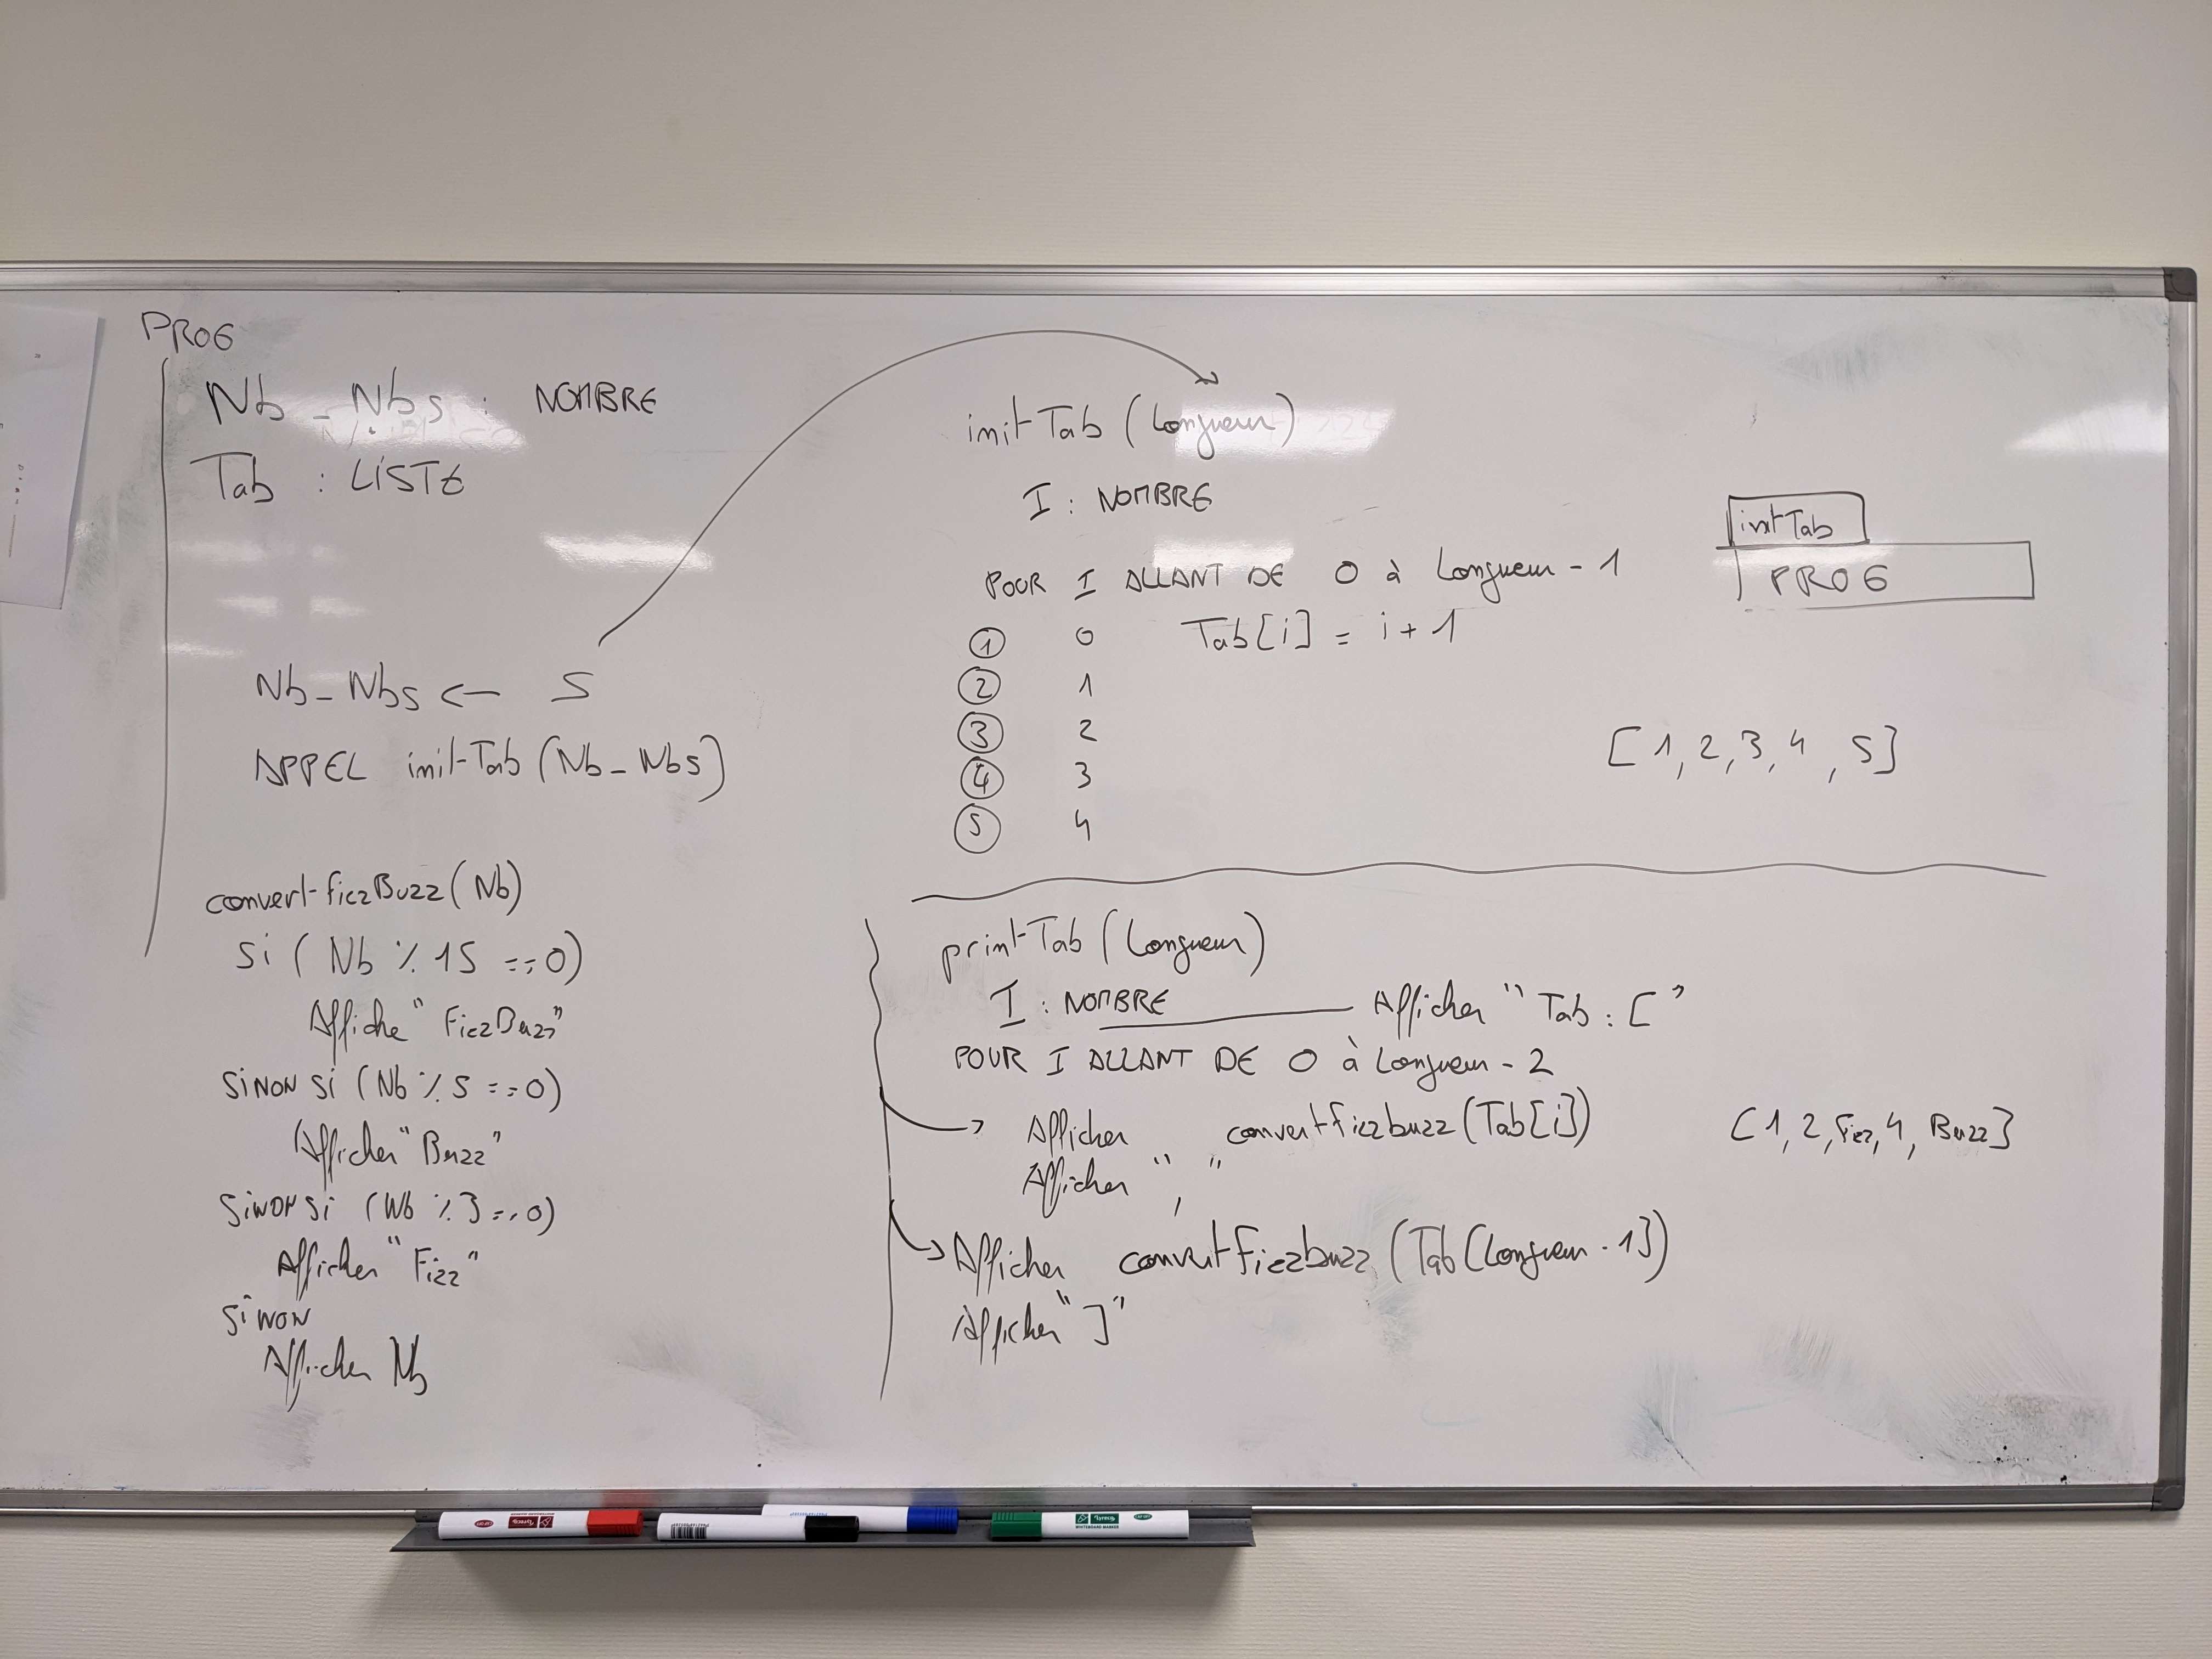 PROG
Nb_Nbs : NOMBRE
Tab : LISTE
Nb_Nbs <— 5
APPEL initTab (Nb_Nbs)
convertfizzBuzz (Nb)
Si ( Nb % 15 == 0)
Affiche "FizzBuzz"
SINON Si (Nb % 5 == 0)
Afficher "Buzz"
SiNON Si (Nb % 3 == 0)
Afficher "Fizz"
SiNON
Afficher Nb
initTab (Longueur)
I : NOMBRE
POUR I ALLANT DE 0 à Longueur - 1
1 0 Tab[i] = i + 1
2 1
3 2
4 3
5 4
initTab
PROG
[1, 2, 3, 4, 5]
printTab (Longueur)
I : NOMBRE Afficher "Tab : ["
POUR I ALLANT DE 0 à Longueur - 2
Afficher convertfizzbuzz (Tab[i])
Afficher ","
Afficher convertfizzbuzz (Tab[Longueur - 1])
Afficher "]"
[1, 2, Fizz, 4, Buzz]